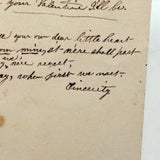 your Valentine I'll be
your own dear little heart
mine, at mere shall part
we'
mere regret;
day, when first we met.
Sincerity